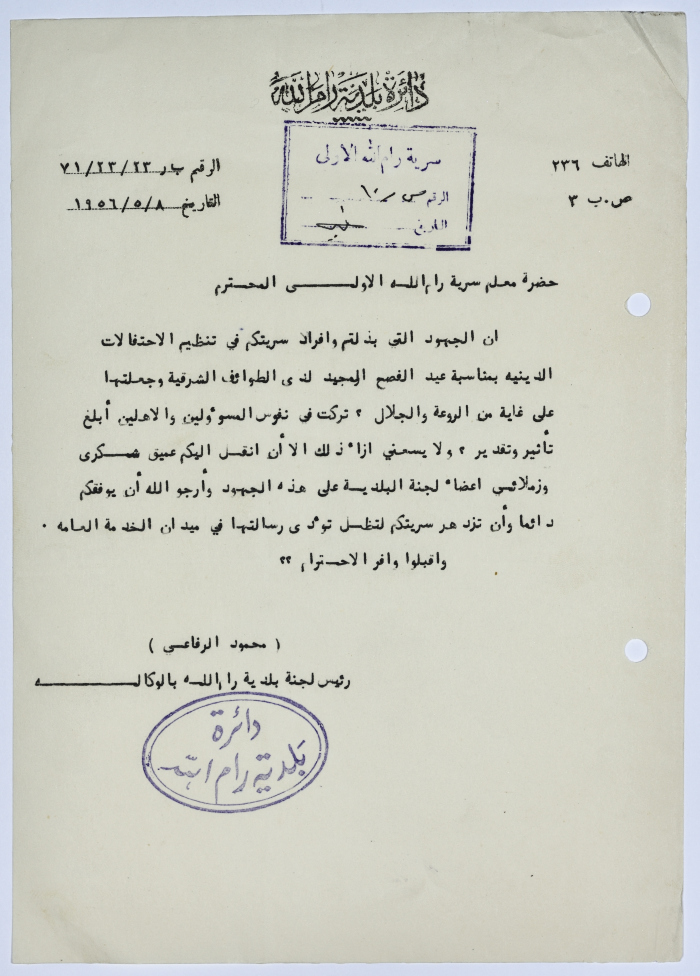 دائرة بلدية رام الله
الهاتف ٢٣٦
ص.ب ٣
سرية رام الله الاولى
الرقم
التاريخ
الرقم ب ر ٧١/٢٣/٢٣
التاريخ ١٩٥٦/٥/٨
حضرة معلم سرية رام اللـه الاولـــــى المحـترم
ان الجهود التي بذلتم وافراد سريتكم في تنظيم الاحتفالات
الدينيه بمناسبة عيد الفصح المجيد لدى الطوائف الشرقية وجعلتها
على غاية من الروعة والجلال ؟ تركت في نفوس المسوٴولين والاهلين أبلغ
تأثير وتقدير ؟ ولا يسعني ازاء ذلك الا أن انقـل اليكم عميق شـــكرى
وزملائـي اعضاء لجنة البلديـة على هذه الجهود وأرجو الله أن يوفقكم
دائما وأن تزدهر سريتكم لتظـل توٴدى رسالتهـا في ميدان الخدمة العامه .
واقبلوا وافر الاحـترام ؟؟
( محمود الرفاعـي )
رئيس لجنة بلدية رام اللـه بالوكالـــــــــه
دائرة
بلدية رام الله